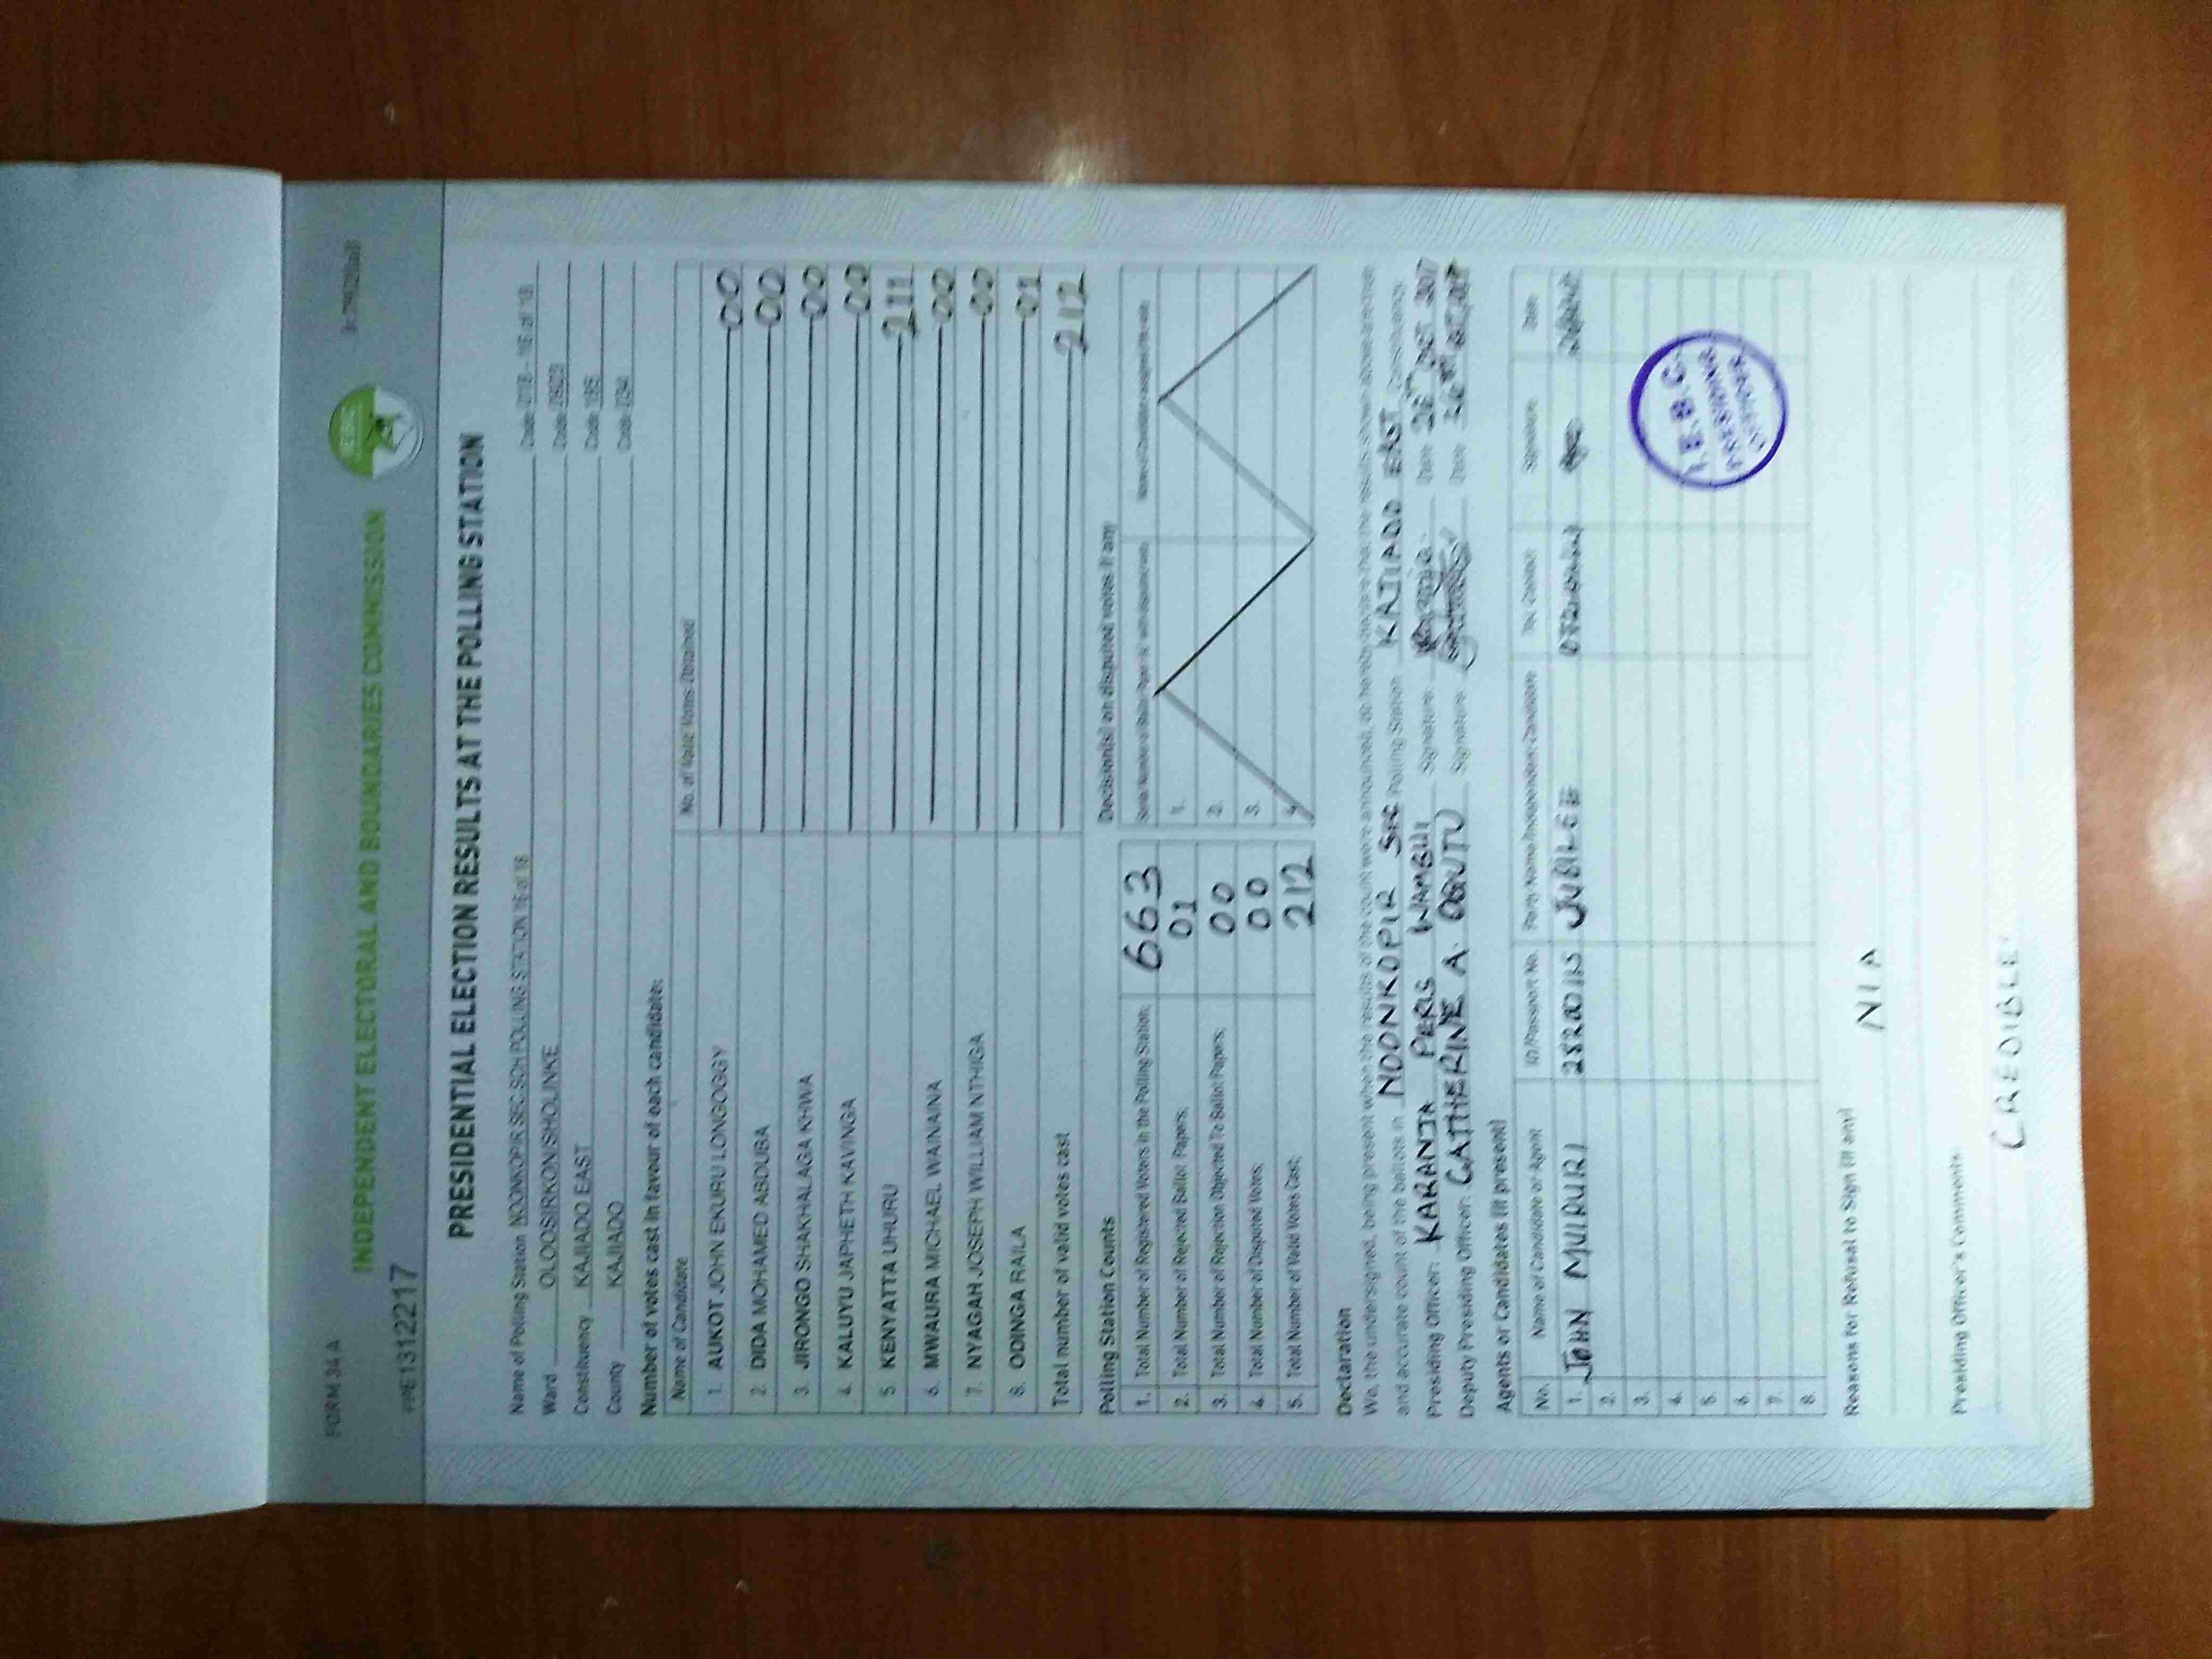 FORM 34 A
INDEPENDENT ELECTORAL AND BOUNDARIES COMMISSION
PRE1312217
PRESIDENTIAL ELECTION RESULTS AT THE POLLING STATION
Name of Polling Station NOONKOPIR SEC SCH POLLING STATION 16 of 18 Code 018 - 16 of 18
Ward OLOOSIRKON/SHOLINKE Code 0923
Constituency KAJIADO EAST Code 185
County KAJIADO Code 034
Number of votes cast in favour of each candidate:
Name of Candidate No. of Valid Votes Obtained
1. AUKOT JOHN EKURU LONGOGGY 00
2. DIDA MOHAMED ABDUBA 00
3. JIRONGO SHAKHALAGA KHWA 00
4. KALUYU JAPHETH KAVINGA 00
5. KENYATTA UHURU 211
6. MWAURA MICHAEL WAINAINA 00
7. NYAGAH JOSEPH WILLIAM NTHIGA 00
8. ODINGA RAILA 01
Total number of valid votes cast 212
Polling Station Counts Decision(s) on disputed votes if any
1. Total Number of Registered Voters in the Polling Station; 663
2. Total Number of Rejected Ballot Papers; 01 1.
3. Total Number of Rejection Objected To Ballot Papers; 00 2.
4. Total Number of Disputed Votes; 00 3.
5. Total Number of Valid Votes Cast; 212 4.
Declaration
We, the undersigned, being present when the results of the count were announced, do hereby declare that the results shown above are true
and accurate count of the ballots in NOONKOPIR SEC Polling Station KAJIADO EAST Constituency.
Presiding Officer: KARANJA PERIS WAMBUI Signature: Date 26TH OCT 2017
Deputy Presiding Officer: CATHERINE A. OGUTU Signature: Date
Agents or Candidates (if present)
No. Name of Candidate or Agent ID/Passport No. Party Name/Independent Candidate Tel. Contact Signature Date
1. JOHN MURURI 28200115 JUBILEE
2.
3.
4.
5.
6.
7.
8.
I.E.B.C.
PRESIDING
OFFICER
Reasons for Refusal to Sign (if any)
N/A
Presiding Officer's Comments
CREDIBLE